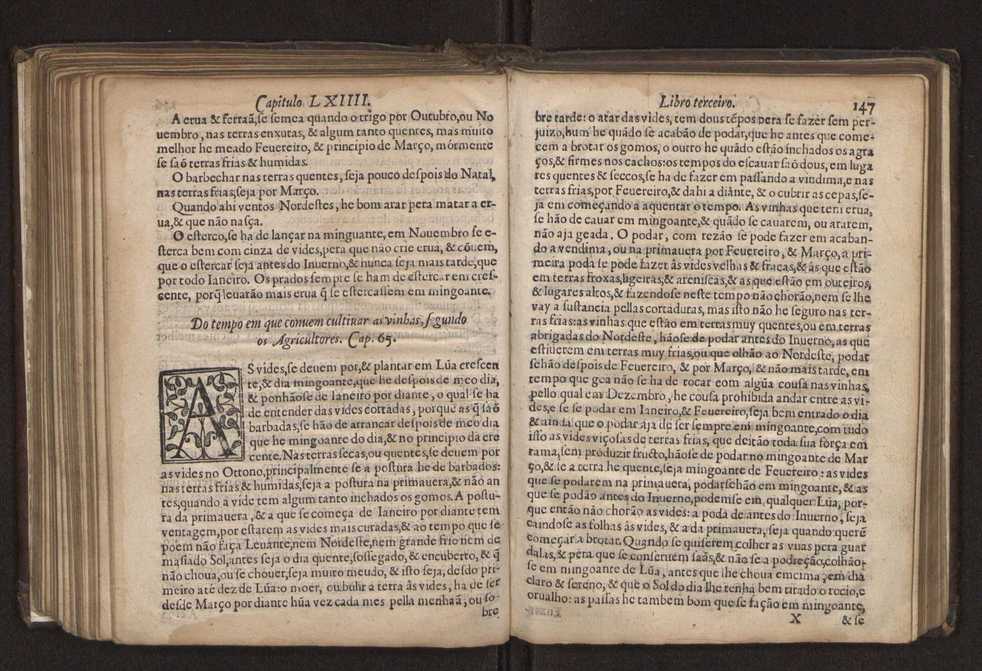 Capitulo LXIIII.
A erua & ferraã, se semea quando o trigo por Outubro, ou No
uembro, nas terras enxutas, & algum tanto quentes, mas muito
melhor he meado Feuereiro, & principio de Março, mòrmente
se saõ terras frias & humidas.
O barbechar nas terras quentes, seja pouco despois do Natal,
nas terras frias, seja por Março.
Quando ahi ventos Nordestes, he bom arar pera matar a er-
ua, & que não nasça.
O esterco, se ha de lançar na minguante, em Nouembro se e-
sterca bem com cinza de vides, pera que não crie erua, & cõuem,
que o estercar seja antes do Inuerno, & nunca seja mais tarde, que
por todo Ianeiro. Os prados sempre se ham de estercar em cres-
cente, porq̃ leuarão mais erua q̃ se estercassem em mingoante.
Do tempo em que conuem cultiuar as vinhas, segundo
os Agricultores. Cap. 65.
AS vides, se deuem por, & plantar em Lũa crescen
te, & dia mingoante, que he despois de meo dia,
& ponhãose de Ianeiro por diante, o qual se ha
de entender das vides cortadas, porque as q̃ saõ
barbadas, se hão de arrancar despois de meo dia
que he mingoante do dia, & no principio da cre
cente. Nas terras secas, ou quentes, se deuem por
as vides no Ottono, principalmente se a postura he de barbados:
nas terras frias & humidas, seja a postura na primauera, & não an
tes, quando a vide tem algum tanto inchados os gomos. A postu-
ra da primauera, & a que se começa de Ianeiro por diante tem
ventagem, por estarem as vides mais curadas, & ao tempo que se
poem não faça Leuante, nem Nordeste, nem grande frio nem de
masiado Sol, antes seja o dia quente, sossegado, & encuberto, & q̃
não choua, ou se chouer, seja muito meudo, & isto seja, desdo pri-
meiro atè dez de Lũa: o moer, ou bulir a terra âs vides, ha de ser
desde Março por diante hũa vez cada mes pella menhaã, ou so-
bre
Libro terceiro. 147
bre tarde: o atar das vides, tem dous tẽpos pera se fazer sem per-
juizo, hum he quãdo se acabão de podar, que he antes que come-
cem a brotar os gomos, o outro he quãdo estão inchados os agra
ços, & firmes nos cachos: os tempos do escauar saõ dous, em luga
res quentes & seccos, se ha de fazer em passando a vindima, e nas
terras frias, por Feuereiro, & dahi a diãnte, & o cubrir as cepas, se-
ja em começando a aquentar o tempo. As vinhas que tem erua,
se hão de cauar em mingoante, & quãdo se cauarem, ou ararem,
não aja geada. O podar, com rezão se pode fazer em acaban-
do a vendima, ou na primauera por Feuereiro, & Março, a pri-
meira poda se pode fazer âs vides velhas & fracas, & às que estão
em terras froxas, ligeiras, & areniscas, & as que estão em outeiros,
& lugares altos, & fazendose neste tempo não chorão, nem se lhe
vay a sustancia pellas cortaduras, mas isto não he seguro nas ter-
ras frias: as vinhas que estão em terras muy quentes, ou em terras
abrigadas do Nordeste, hãose de podar antes do Inuerno, as que
estiuerem em terras muy frias, ou que olhão ao Nordeste, podar
sehão despois de Feuereiro, & por Março, & não mais tarde, em
tempo que gea não se ha de tocar com algũa cousa nas vinhas,
pello qual em Dezembro, he cousa prohibida andar entre as vi-
des, e se se podar em Ianeiro, & Feuereiro, seja bem entrado o dia
& ainda que o podar aja de ser sempre em mingoante, com tudo
isso as vides viçosas de terras frias, que deitão toda sua força em
rama, sem produzir fructo, hãose de podar no mingoante de Mar
ço, & se a terra he quente, seja mingoante de Feuereiro: as vides
que se podarem na primauera, podarsehão em mingoante, & as
que se podão antes do Inuerno, podemse em qualquer Lũa, por-
que então não chorão as vides: a poda de antes do Inuerno, seja
caindose as folhas às vides, & a da primauera, seja quando querẽ
começar a brotar. Quando se quiserem colher as vuas pera guar
dalas, & pera que se conseruem saãs, & não se apodreção, colhão-
se em mingoante de Lũa, antes que lhe choua emcima, em dia
claro & sereno, & que o Sol do dia lhe tenha bem tirado o rocio, e
orualho: as passas he tambem bom que se fação em mingoante,
X & se